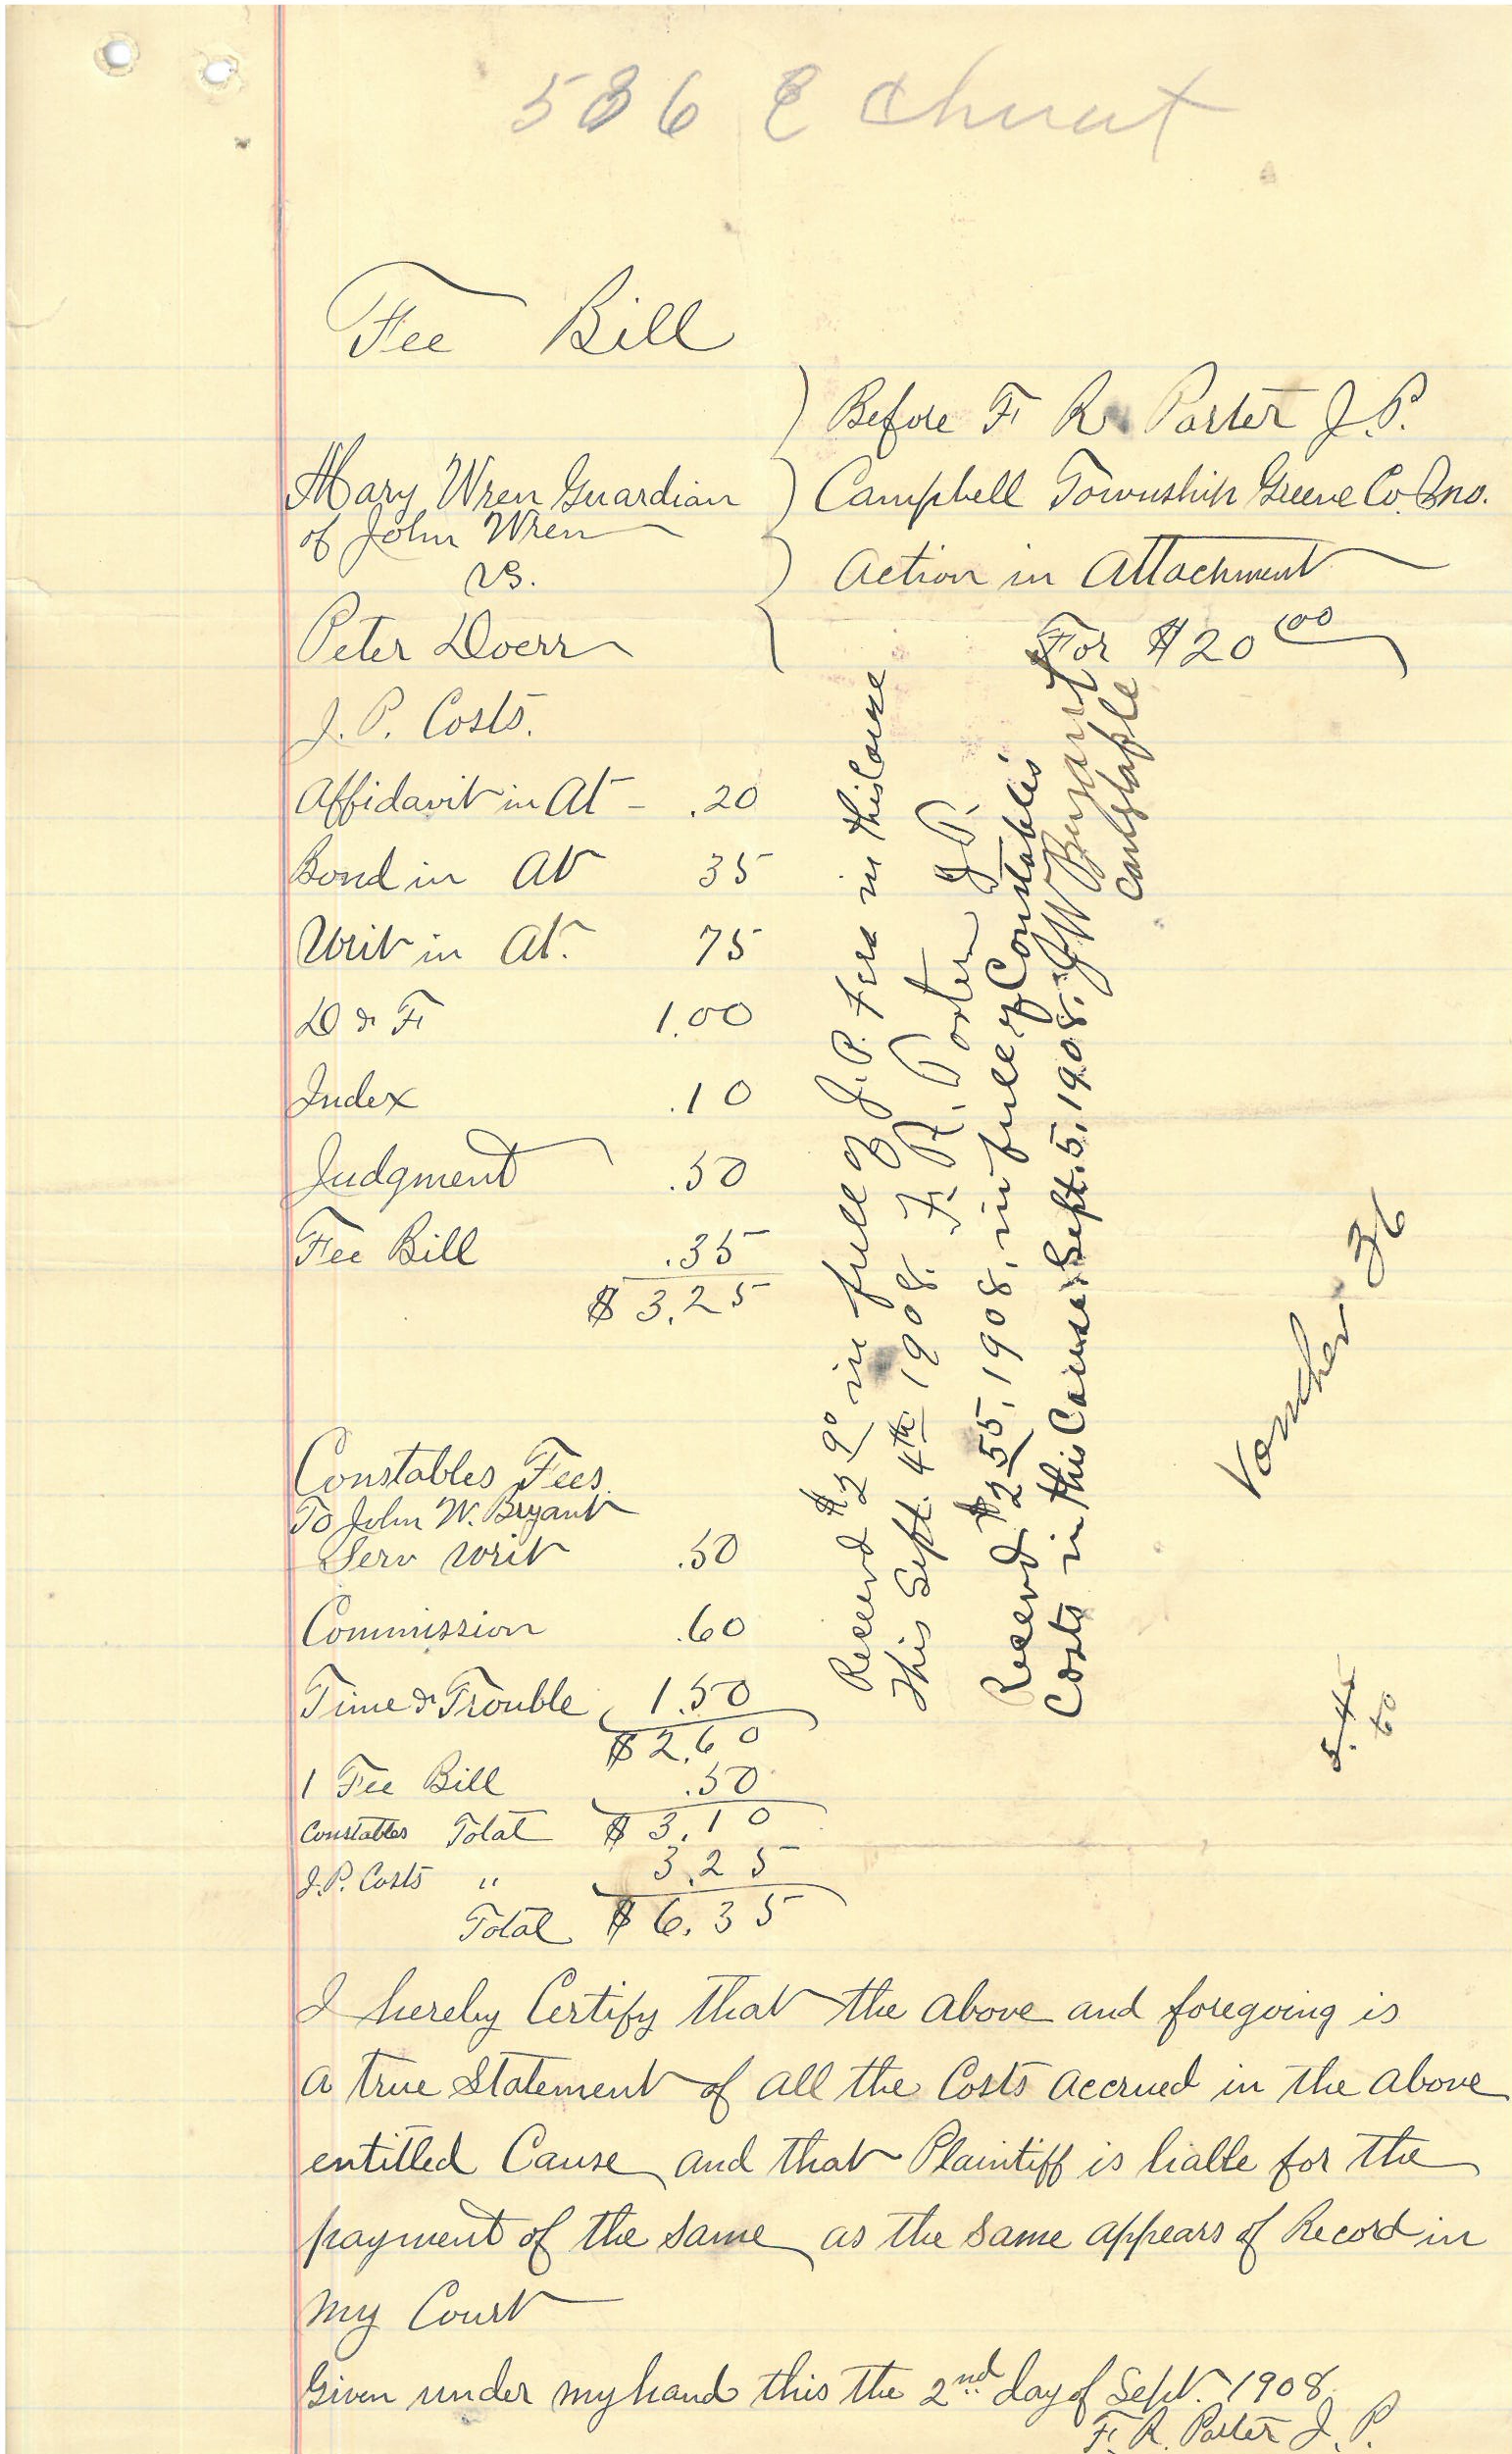 536 E
Fee Bill
Before F R Porter J.P.
Mary Wren Guardian
of John Wren
vs.
Peter Doerr
Campbell Township Greene Co. Mo.
Action in Attachment
For $20 00
J. P. Costs.
Affidavit in At - .20
Bond in At 35
Writ in At. 75
D & F 1.00
Index .10
Judgment .50
Fee Bill .35
$ 3.25
Constables Fees.
To John W. Bryant
Serv Writ .50
Commission .60
Time & Trouble 1.50
$ 2.60
1 Fee Bill .50
Constables Total $ 3.10
J.P. Costs " 3.25
Total $ 6.35
Receivd $2 90 in full of J.P. Fees in this Cause
This Sept. 4th 1908. F. R. Porter J.P.
Receivd $2 55, 1908, in full of Constables
Costs in this Cause. Sept. 5, 1908. J W Bryant
Constable
Voucher 36
5.45
60
I hereby Certify that the above and foregoing is
a true Statement of all the Costs accrued in the above
entitled Cause and that Plaintiff is liable for the
payment of the same as the same appears of Record in
my Court
Given under my hand this the 2nd day of Sept. 1908.
F. R. Porter J. P.